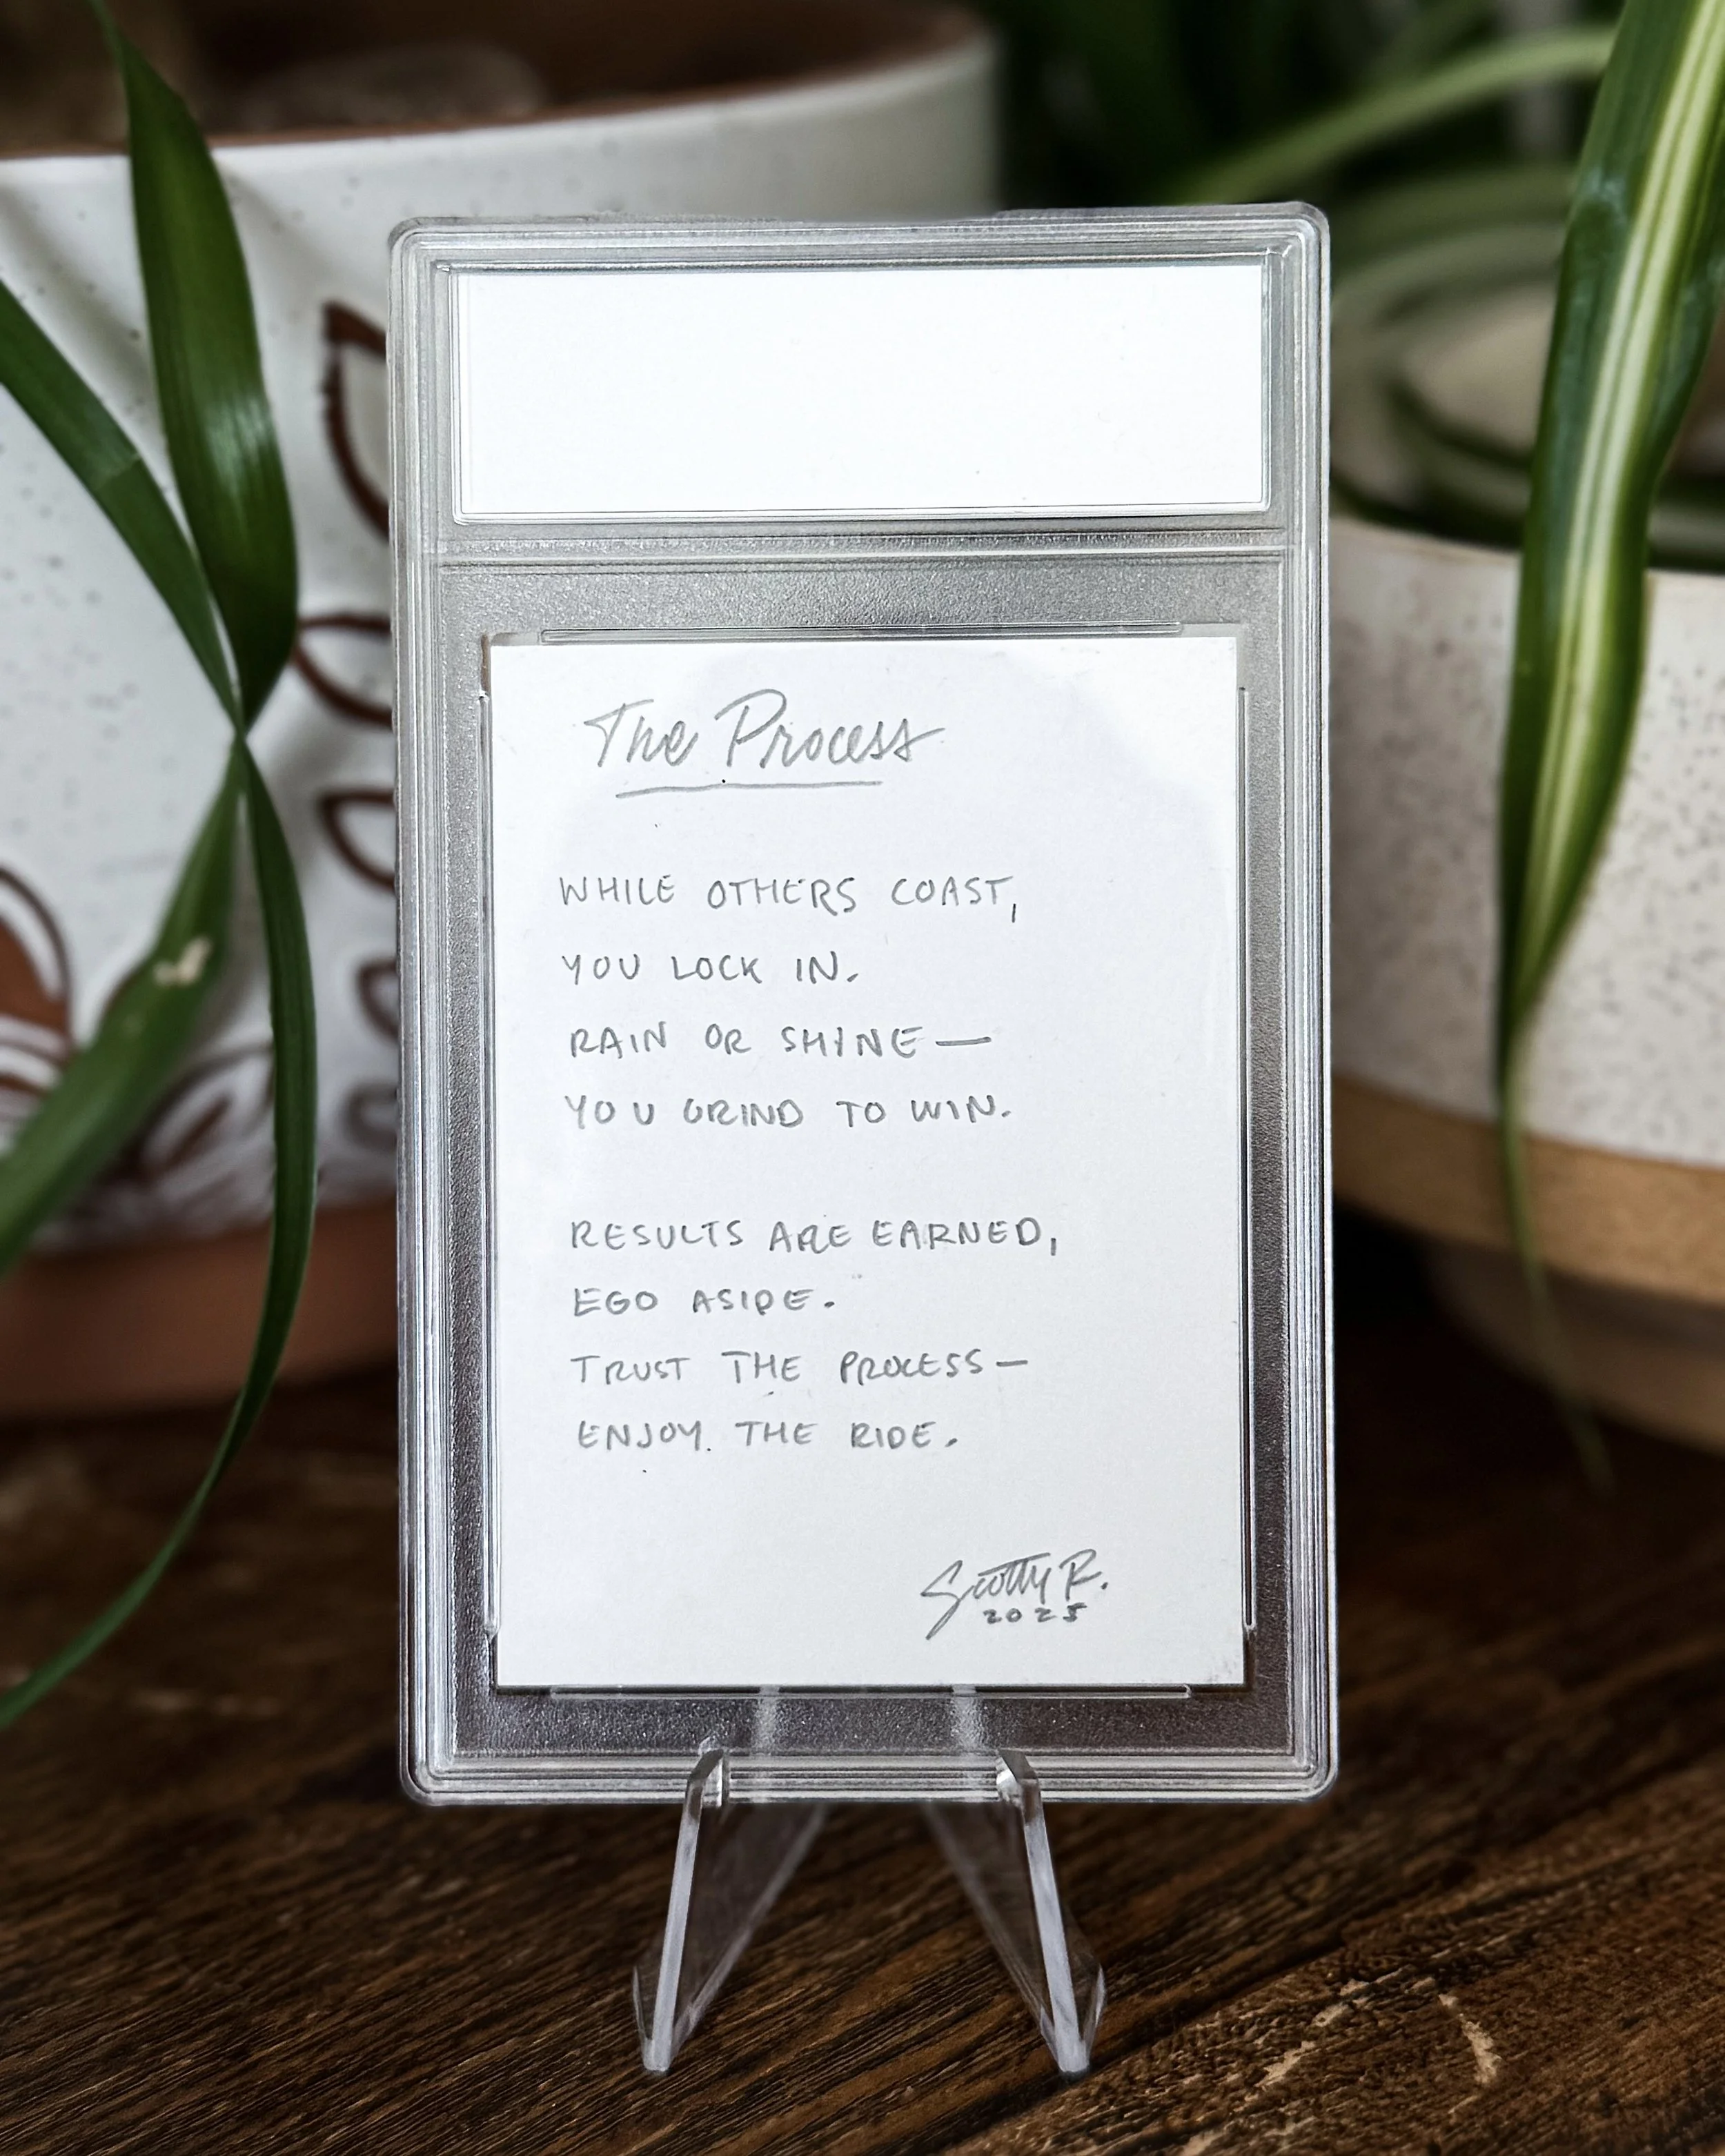 The Process
WHILE OTHERS COAST,
YOU LOCK IN.
RAIN OR SHINE—
YOU GRIND TO WIN.
RESULTS ARE EARNED,
EGO ASIDE.
TRUST THE PROCESS—
ENJOY THE RIDE.
Scotty R.
2025